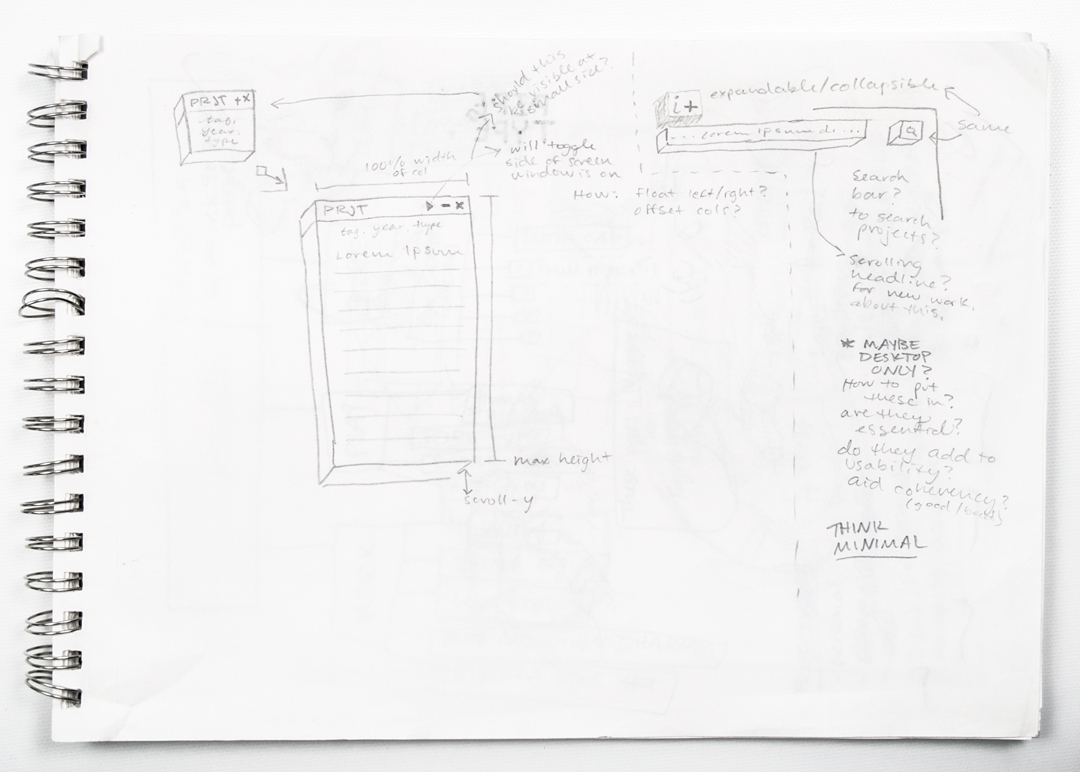 PRJT +×
tag,
year,
type
should this
be visible at
small size?
will toggle
side of screen
window is on
How: float left/right?
offset cols?
100% width
of col
PRJT
tag, year, type
Lorem Ipsum
max height
scroll-y
i+
expandable/collapsible
same
... Lorem ipsum do...
Search
bar?
to search
projects?
scrolling
headline?
for new work,
about this.
* MAYBE
DESKTOP
ONLY?
How to put
these in?
are they
essential?
do they add to
usability?
aid coherency?
(good/bad)
THINK
MINIMAL